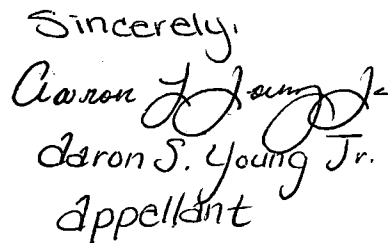 Sincerely,
Aaron S Young Jr
Aaron S. Young Jr.
appellant